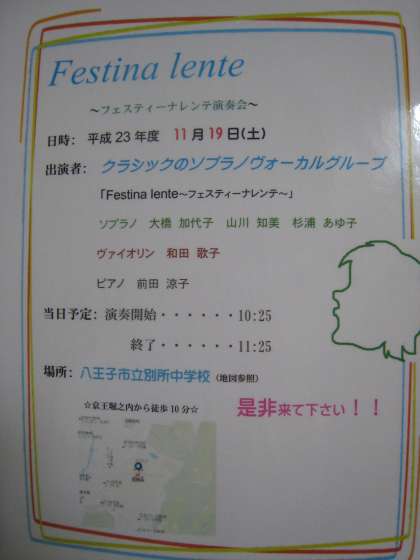 Festina lente
～フェスティーナレンテ演奏会～
日時： 平成23年度 11月19日(土)
出演者： クラシックのソプラノヴォーカルグループ
「Festina lente～フェスティーナレンテ～」
ソプラノ 大橋 加代子 山川 知美 杉浦 あゆ子
ヴァイオリン 和田 歌子
ピアノ 前田 涼子
当日予定： 演奏開始・・・・・・10:25
終了・・・・・・11:25
場所： 八王子市立別所中学校 （地図参照）
☆京王堀之内から徒歩10分☆
是非来て下さい！！